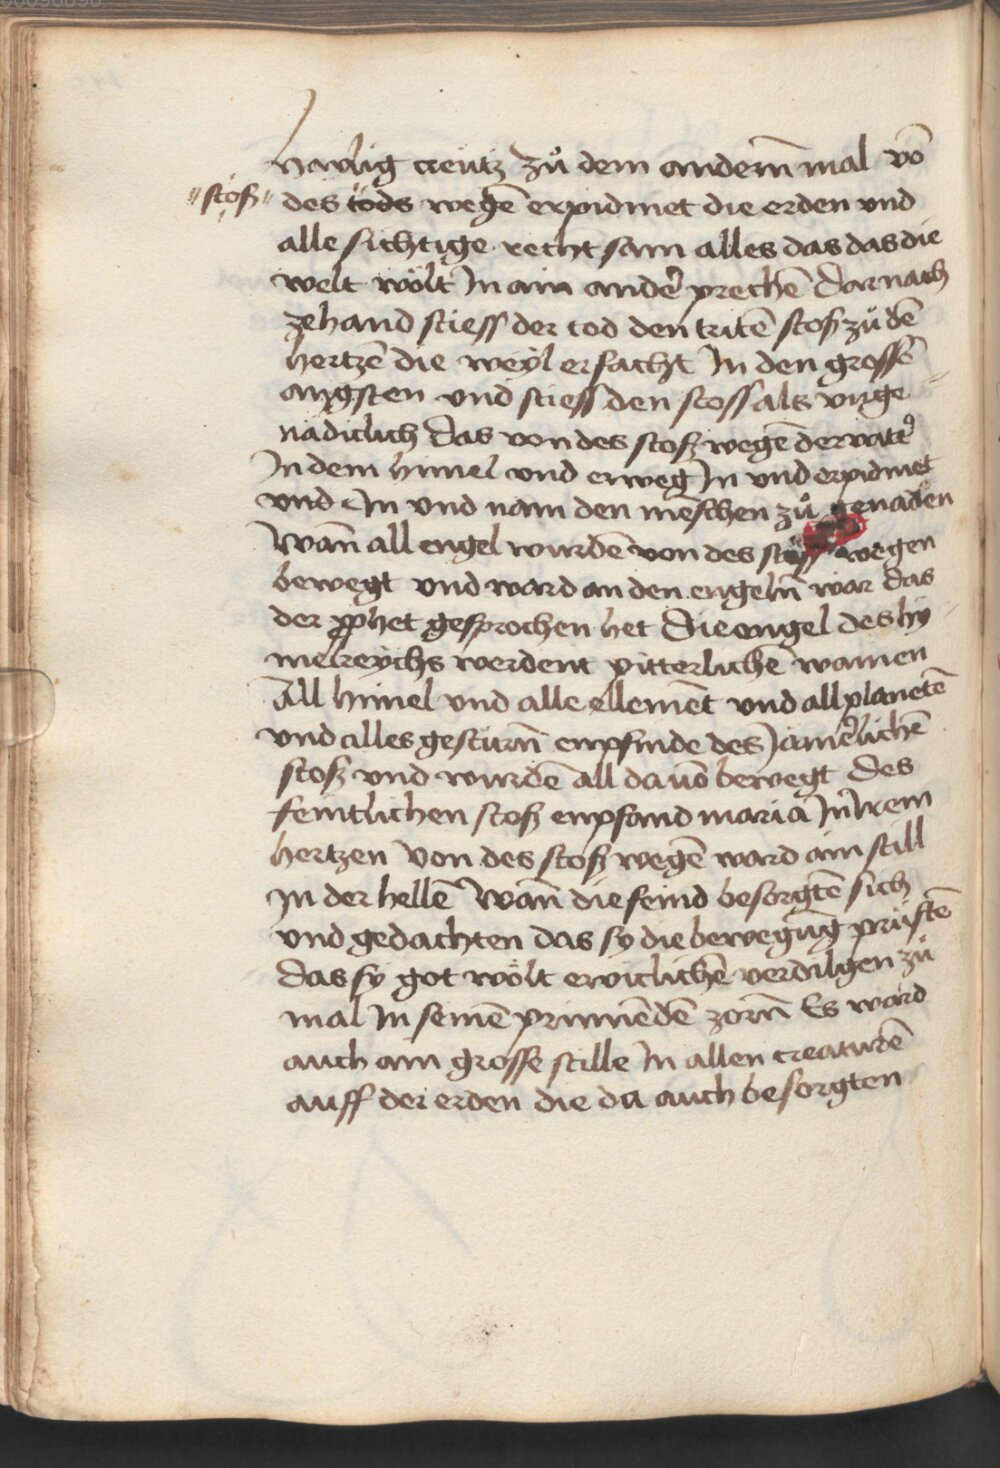 haylig creütz zů dem anderm̄ mal võ
"stosz" des tods wegē erpidmet die erden vnd
alle sichtige recht sam alles das das die
welt wölt In ain andē prechē Darnach
zehand stiess der tod den tritē stosz zů dē
hertzē die weyl er facht In den grossē
angsten vnd stiess den stoss als vnge
nadiclich Das von des stosz wegē der vattˀ
In dem himel vnd erweg In vnd erpidmet
vnd In vnd nam den menschen zů genaden
Wañ all engel wurdē von des wegen
bewegt vnd ward an den engelñ war das
der pphet gesprochen het Die engel des hy
melreychs werdent pitterlichē wainen
All himel vnd alle ellemēt vnd all planetē
vnd alles gestirñ enpfinde des Jamˀlichē
stosz vnd wurdē all dauõ bewegt Des
feintlichen stosz enpfand maria In Irem
hertzen Von des stosz wegē ward ain still
In der hellē Wañ die feind besorgtē sich
vnd gedachten das sy die bewegūg prüftē
Das sy got wölt ewiclichē verdilgen zů
mal In seinē prinnēdē zorñ Es ward
auch ain grosse stille In allen creaturē
auff der erden die da auch besorgten